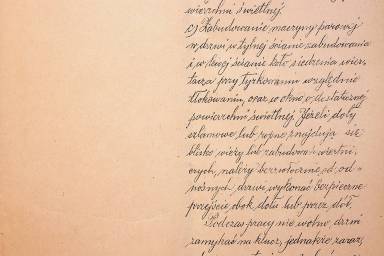 wierzchni świetlnej
c) Zabudowanie maszyny parowej
w drzwi w tylnej ścianie zabudowania
i w lewej ścianie koło siedzenia wier-
tacza przy tyżkowaniu względnie
tłokowaniu, oraz w okno o dostatecznej
powierzchni świetlnej. Jeżeli doły
szlamowe lub ropne znajdują się
blisko wieży lub zabudowań wiertni-
czych, należy bezzwłocznie od od-
nośnych drzwi wykonać bezpieczne
przejście obok dołu lub przez dół.
Podczas pracy nie wolno drzwi
zamykać na klucz, jednakże zaraz,